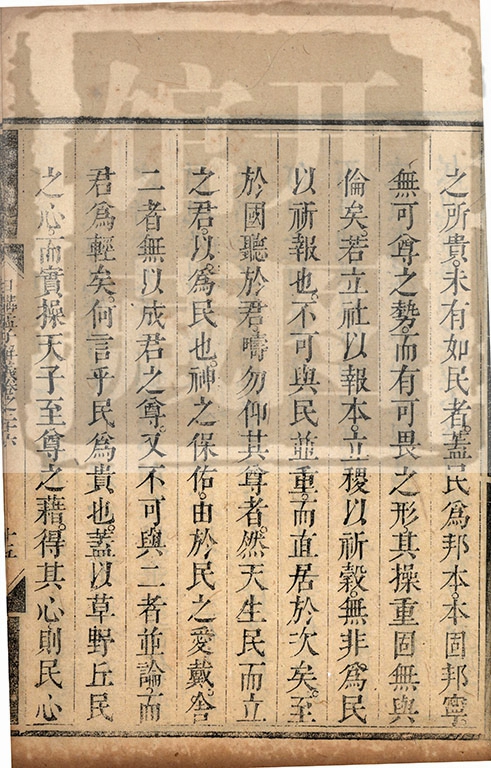 之所貴。未有如民者。蓋民為邦本。本固邦寧
無可尊之勢。而有可畏之形。其操重固無與
倫矣。若立社以報本。立稷以祈穀。無非為民
以祈報也。不可與民並重。而直居於次矣。至
於國聽於君。疇勿仰其尊者。然天生民而立
之君。以為民也。神之保佑。由於民之愛戴。舍
二者無以成君之尊。又不可與二者並論。而
君為輕矣。何言乎民為貴也。蓋以草野丘民
之心。而實操天子至尊之藉。得其心則民心
日講孟子解義卷之二十六
十五